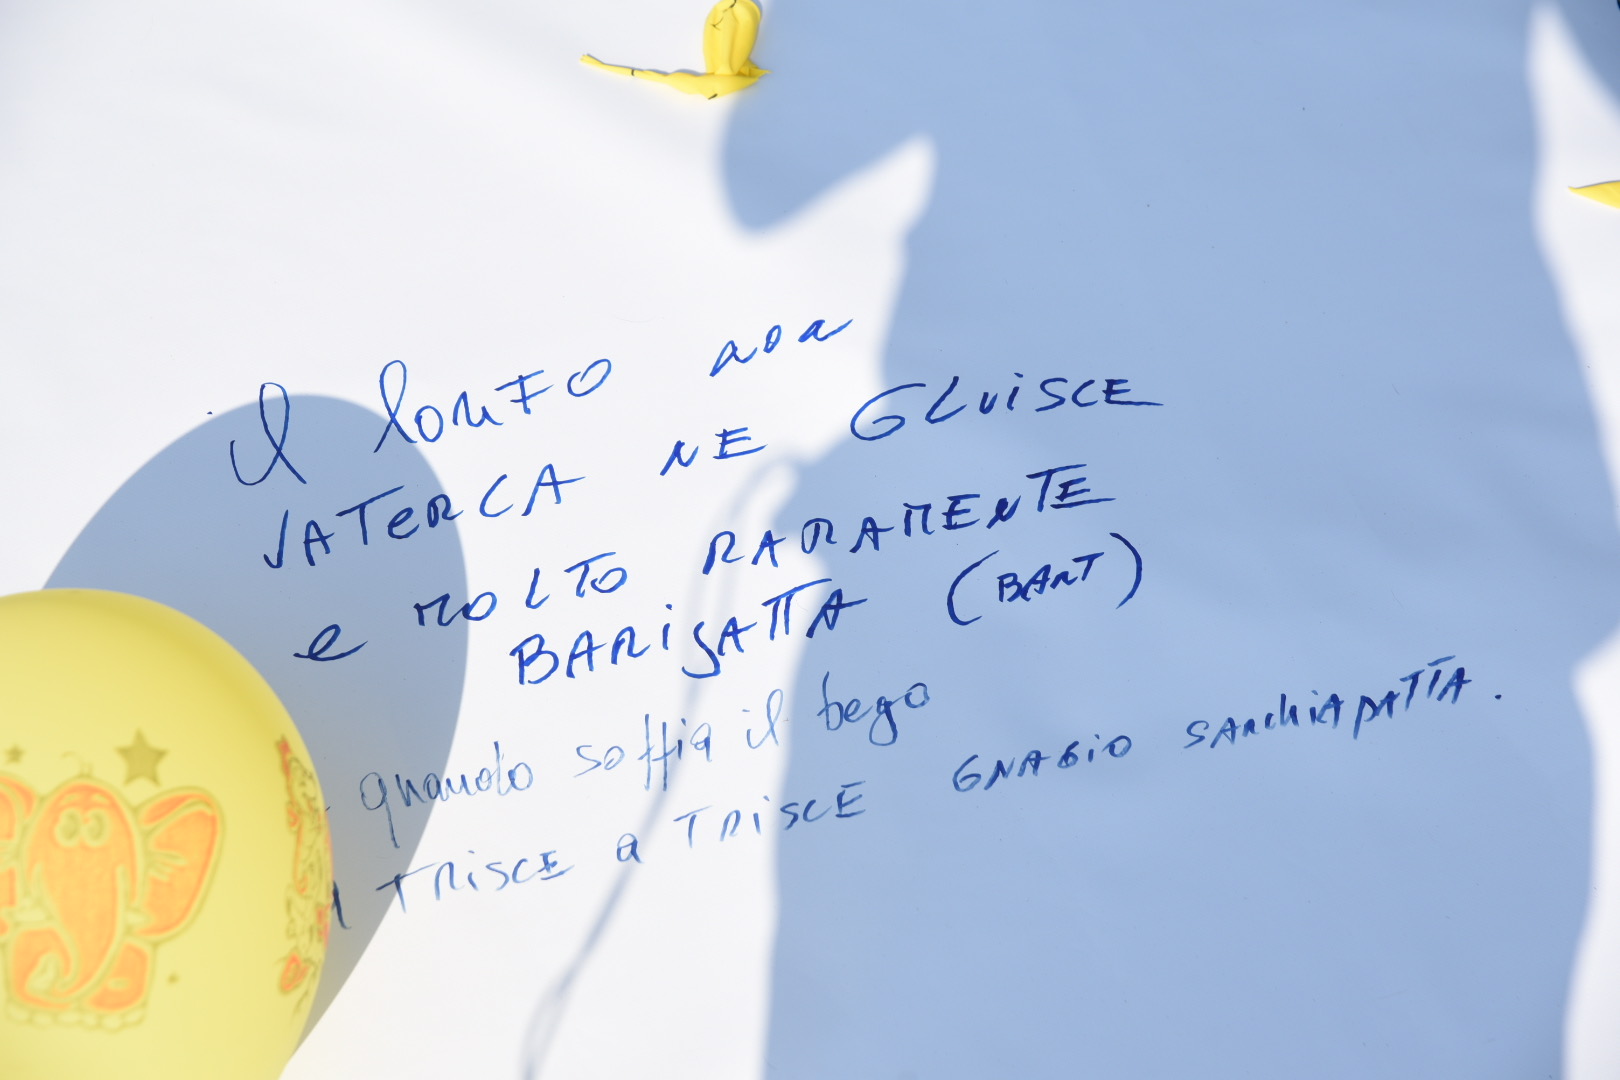 il lonfo non
VATERCA NE GLUISCE
e MOLTO RARAMENTE
BARIGATTA (BART)
quando soffia il bego
A TRISCE a TRISCE GNAGIO SARCHIAPATTA.